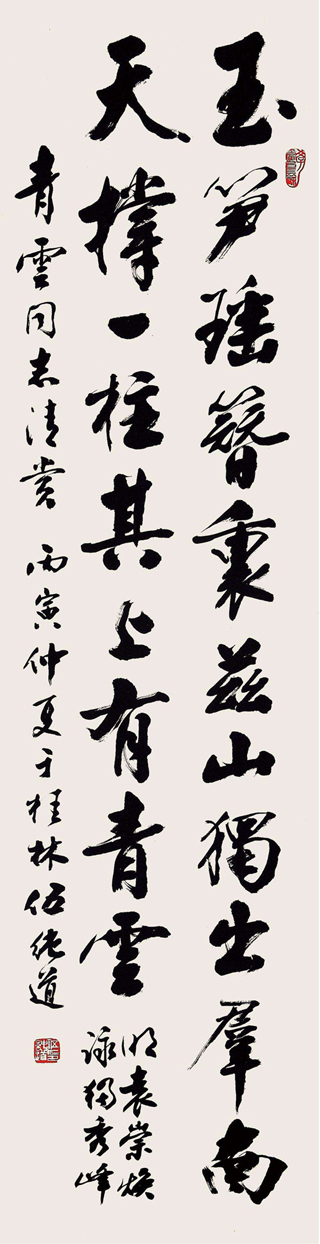 玉笋瑶簪裏兹山獨出羣南
天撑一柱其上有青雲
明袁崇焕
詠獨秀峰
青雲同志清赏 丙寅仲夏于桂林伍纯道